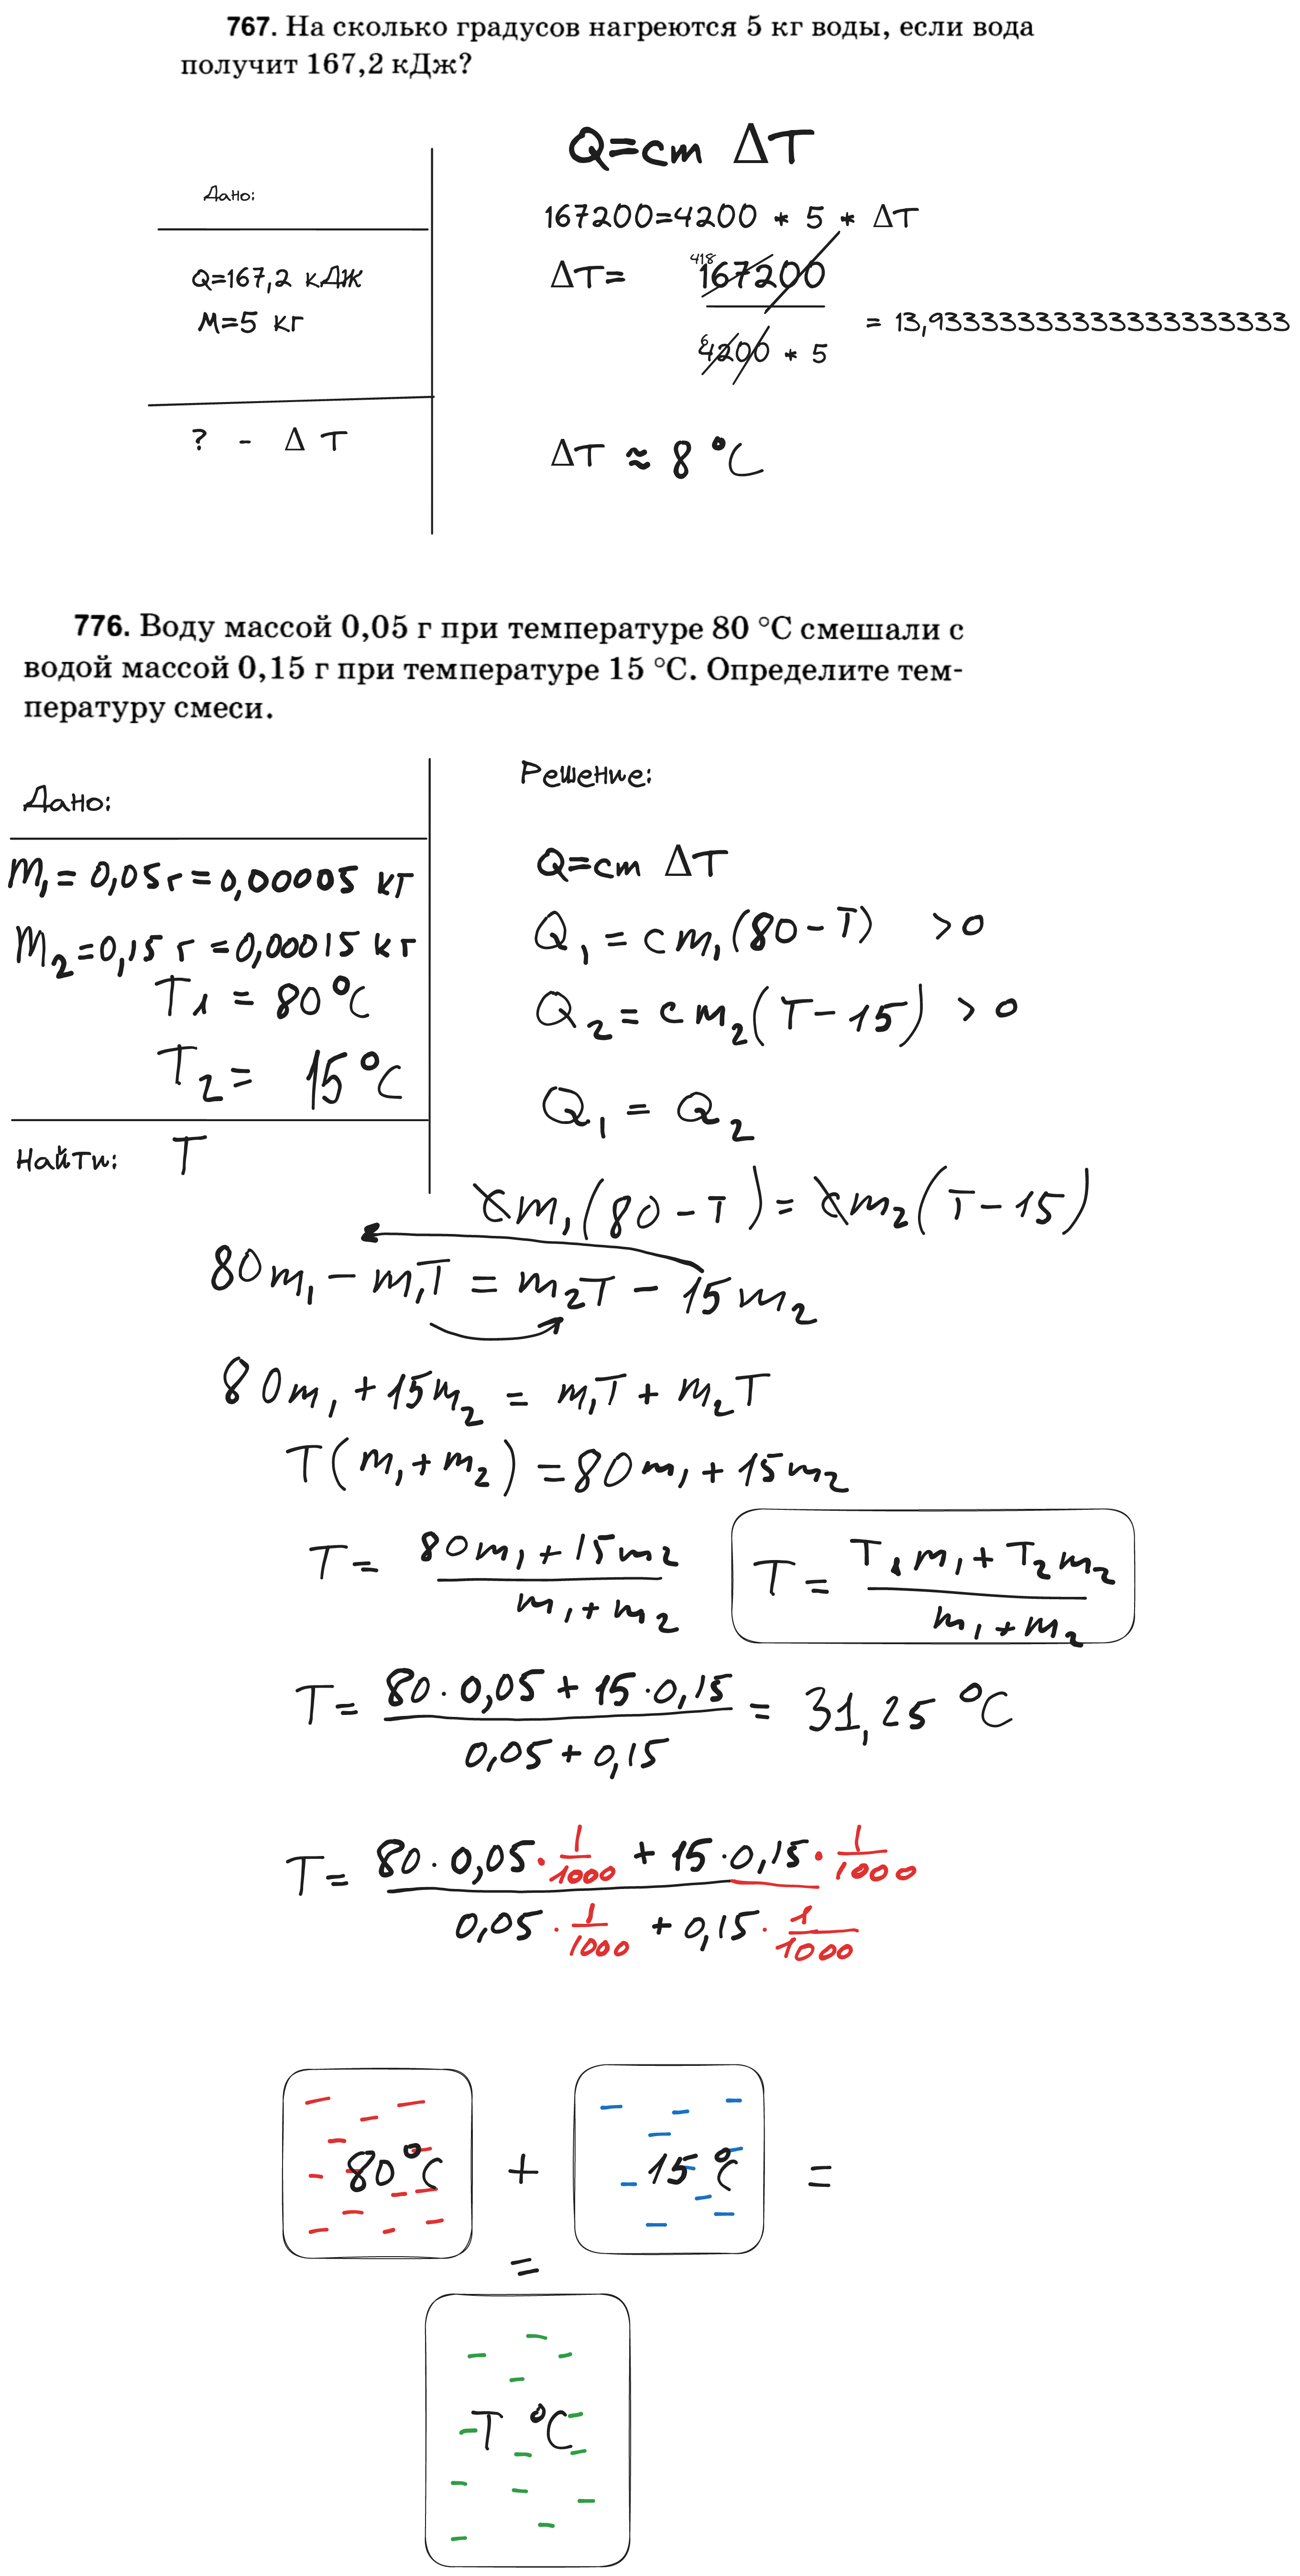 767. На сколько градусов нагреются 5 кг воды, если вода
получит 167,2 кДж?
Q=cm ΔT
Дано:
167200=4200 * 5 * ΔT
Q=167,2 кДж
M=5 кг
418
ΔT= 167200
6
4200 * 5
= 13,9333333333333333333333
? - Δ T
ΔT ≈ 8 °C
776. Воду массой 0,05 г при температуре 80 °C смешали с
водой массой 0,15 г при температуре 15 °C. Определите тем-
пературу смеси.
Дано:
m₁ = 0,05 г = 0,00005 кг
m₂ = 0,15 г = 0,00015 кг
T₁ = 80 °C
T₂ = 15 °C
Найти: T
Решение:
Q=cm ΔT
Q₁ = cm₁(80 - T) > 0
Q₂ = cm₂(T - 15) > 0
Q₁ = Q₂
cm₁(80 - T) = cm₂(T - 15)
80m₁ - m₁T = m₂T - 15m₂
80m₁ + 15m₂ = m₁T + m₂T
T(m₁ + m₂) = 80m₁ + 15m₂
T = 80m₁ + 15m₂
m₁ + m₂
T = T₁m₁ + T₂m₂
m₁ + m₂
T = 80 · 0,05 + 15 · 0,15 = 31,25 °C
0,05 + 0,15
T = 80 · 0,05 · 1/1000 + 15 · 0,15 · 1/1000
0,05 · 1/1000 + 0,15 · 1/1000
80 °C + 15 °C =
=
T °C